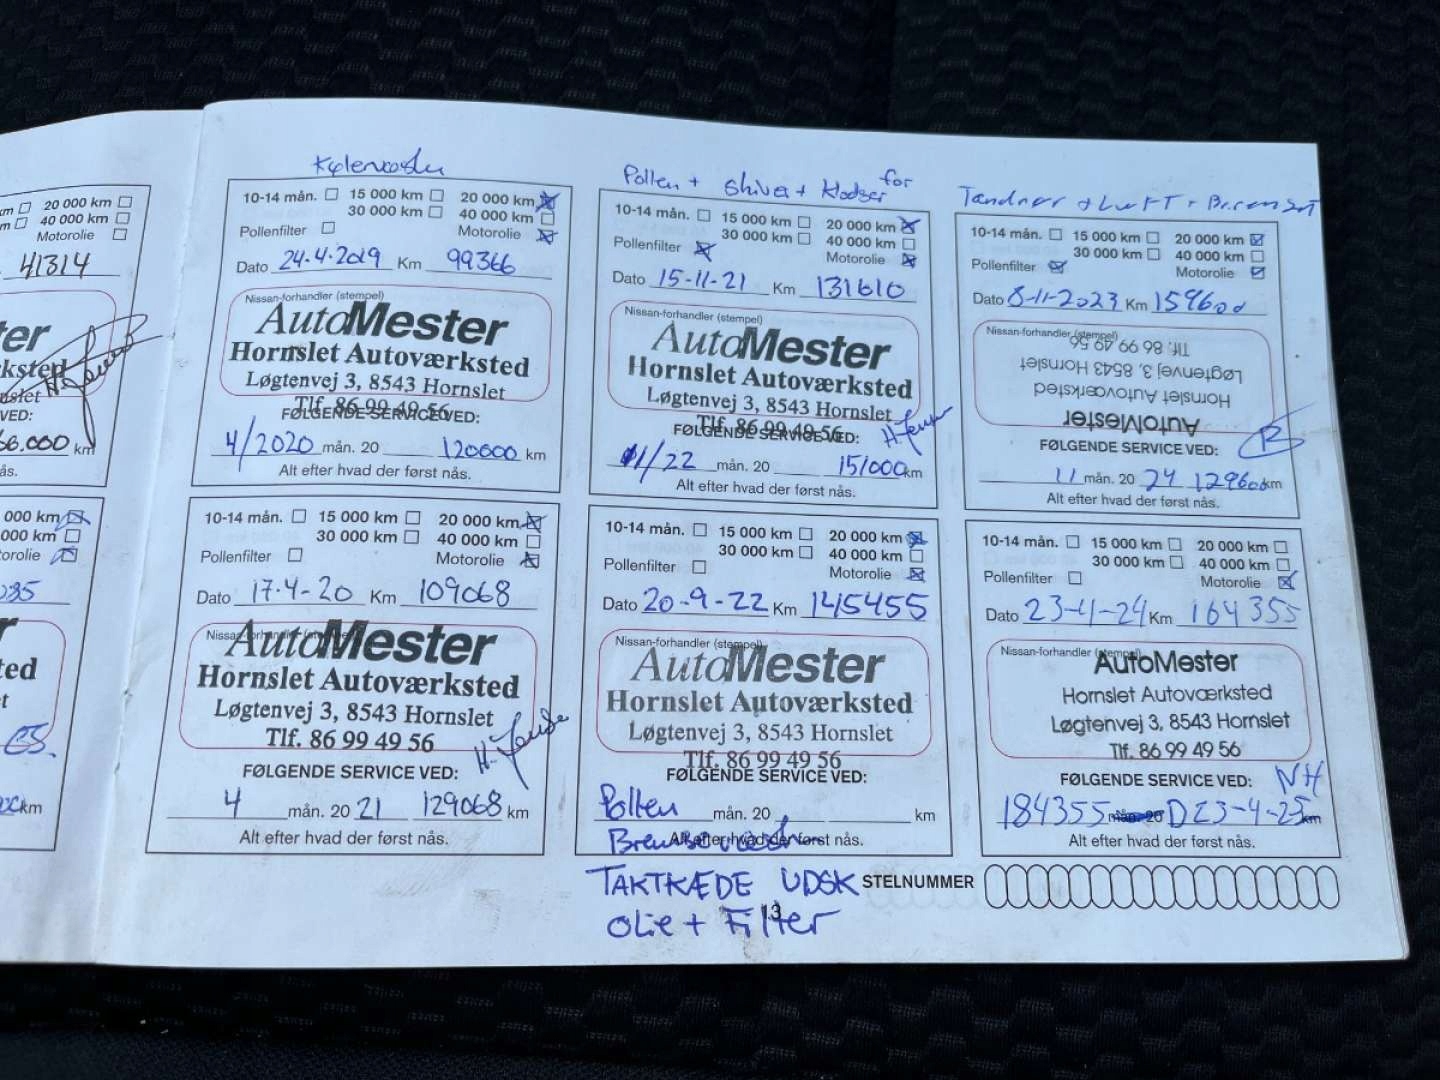 20 000 km
km
40 000 km
Motorolie
41314
ter
ksted
VED:
66.000 km
ås.
000 km
000 km
torolie
235
r
ted
t
km
nås.
Kølervæske
10-14 mån. 15 000 km 20 000 km
30 000 km 40 000 km
Pollenfilter Motorolie
Dato 24-4-2019 Km 99366
Nissan-forhandler (stempel)
AutoMester
Hornslet Autoværksted
Løgtenvej 3, 8543 Hornslet
Tlf. 86 99 49 56
FØLGENDE SERVICE VED:
4/2020 mån. 20 120000 km
Alt efter hvad der først nås.
10-14 mån. 15 000 km 20 000 km
30 000 km 40 000 km
Pollenfilter Motorolie
Dato 17-4-20 Km 109068
Nissan-forhandler (stempel)
AutoMester
Hornslet Autoværksted
Løgtenvej 3, 8543 Hornslet
Tlf. 86 99 49 56
FØLGENDE SERVICE VED:
4 mån. 20 21 129068 km
Alt efter hvad der først nås.
Pollen + skiver + klodser for
10-14 mån. 15 000 km 20 000 km
30 000 km 40 000 km
Pollenfilter Motorolie
Dato 15-11-21 Km 131610
Nissan-forhandler (stempel)
AutoMester
Hornslet Autoværksted
Løgtenvej 3, 8543 Hornslet
Tlf. 86 99 49 56
FØLGENDE SERVICE VED:
11/22 mån. 20 151000 km
Alt efter hvad der først nås.
10-14 mån. 15 000 km 20 000 km
30 000 km 40 000 km
Pollenfilter Motorolie
Dato 20-9-22 Km 145455
Nissan-forhandler (stempel)
AutoMester
Hornslet Autoværksted
Løgtenvej 3, 8543 Hornslet
Tlf. 86 99 49 56
FØLGENDE SERVICE VED:
Pollen mån. 20 km
Alt efter hvad der først nås.
Bremsevæske
TAKTKÆDE UDSK
olie + Filter
13
Tændrør + LUFT +
10-14 mån. 15 000 km 20 000 km
30 000 km 40 000 km
Pollenfilter Motorolie
Dato 8-11-2023 Km 159600
Nissan-forhandler (stempel)
Tlf. 86 99 49 56
Løgtenvej 3, 8543 Hornslet
Hornslet Autoværksted
AutoMester
FØLGENDE SERVICE VED:
11 mån. 20 24 129600 km
Alt efter hvad der først nås.
10-14 mån. 15 000 km 20 000 km
30 000 km 40 000 km
Pollenfilter Motorolie
Dato 23-4-24 Km 164355
Nissan-forhandler (stempel)
AutoMester
Hornslet Autoværksted
Løgtenvej 3, 8543 Hornslet
Tlf. 86 99 49 56
FØLGENDE SERVICE VED: NH
184355 mån. 20 D 23-4-25 km
Alt efter hvad der først nås.
STELNUMMER